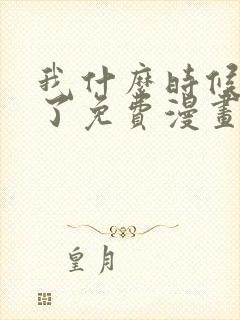 我什麼時候
了免費漫畫
皇月